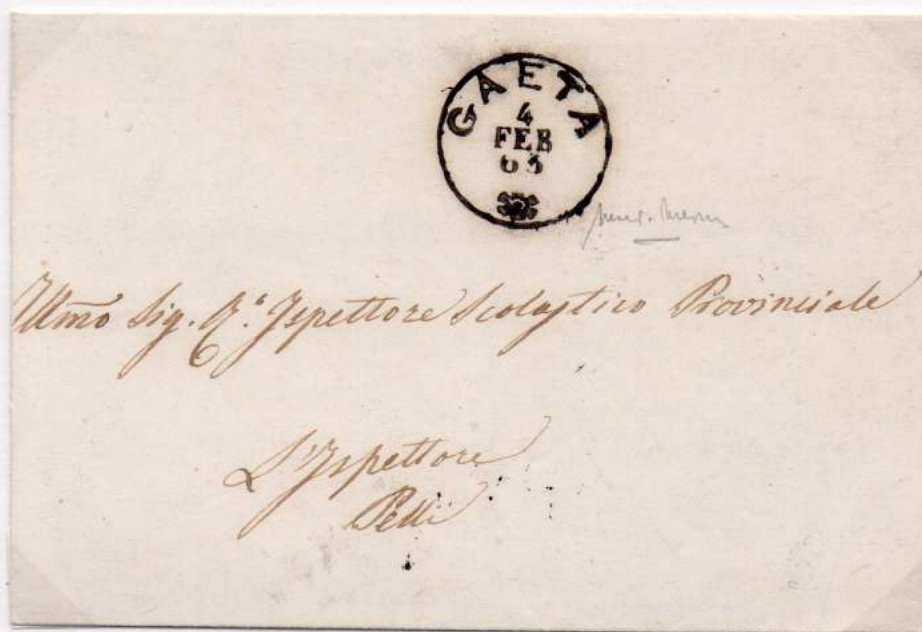 GAETA
4
FEB
63
Illmo Sig. R.º Ispettore Scolastico Provinciale
L'Ispettore
Pelli